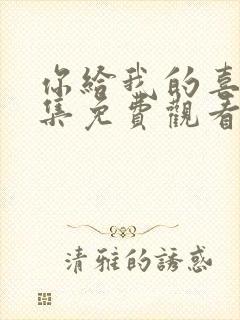 你給我的喜
集免費觀看
清雅的誘惑